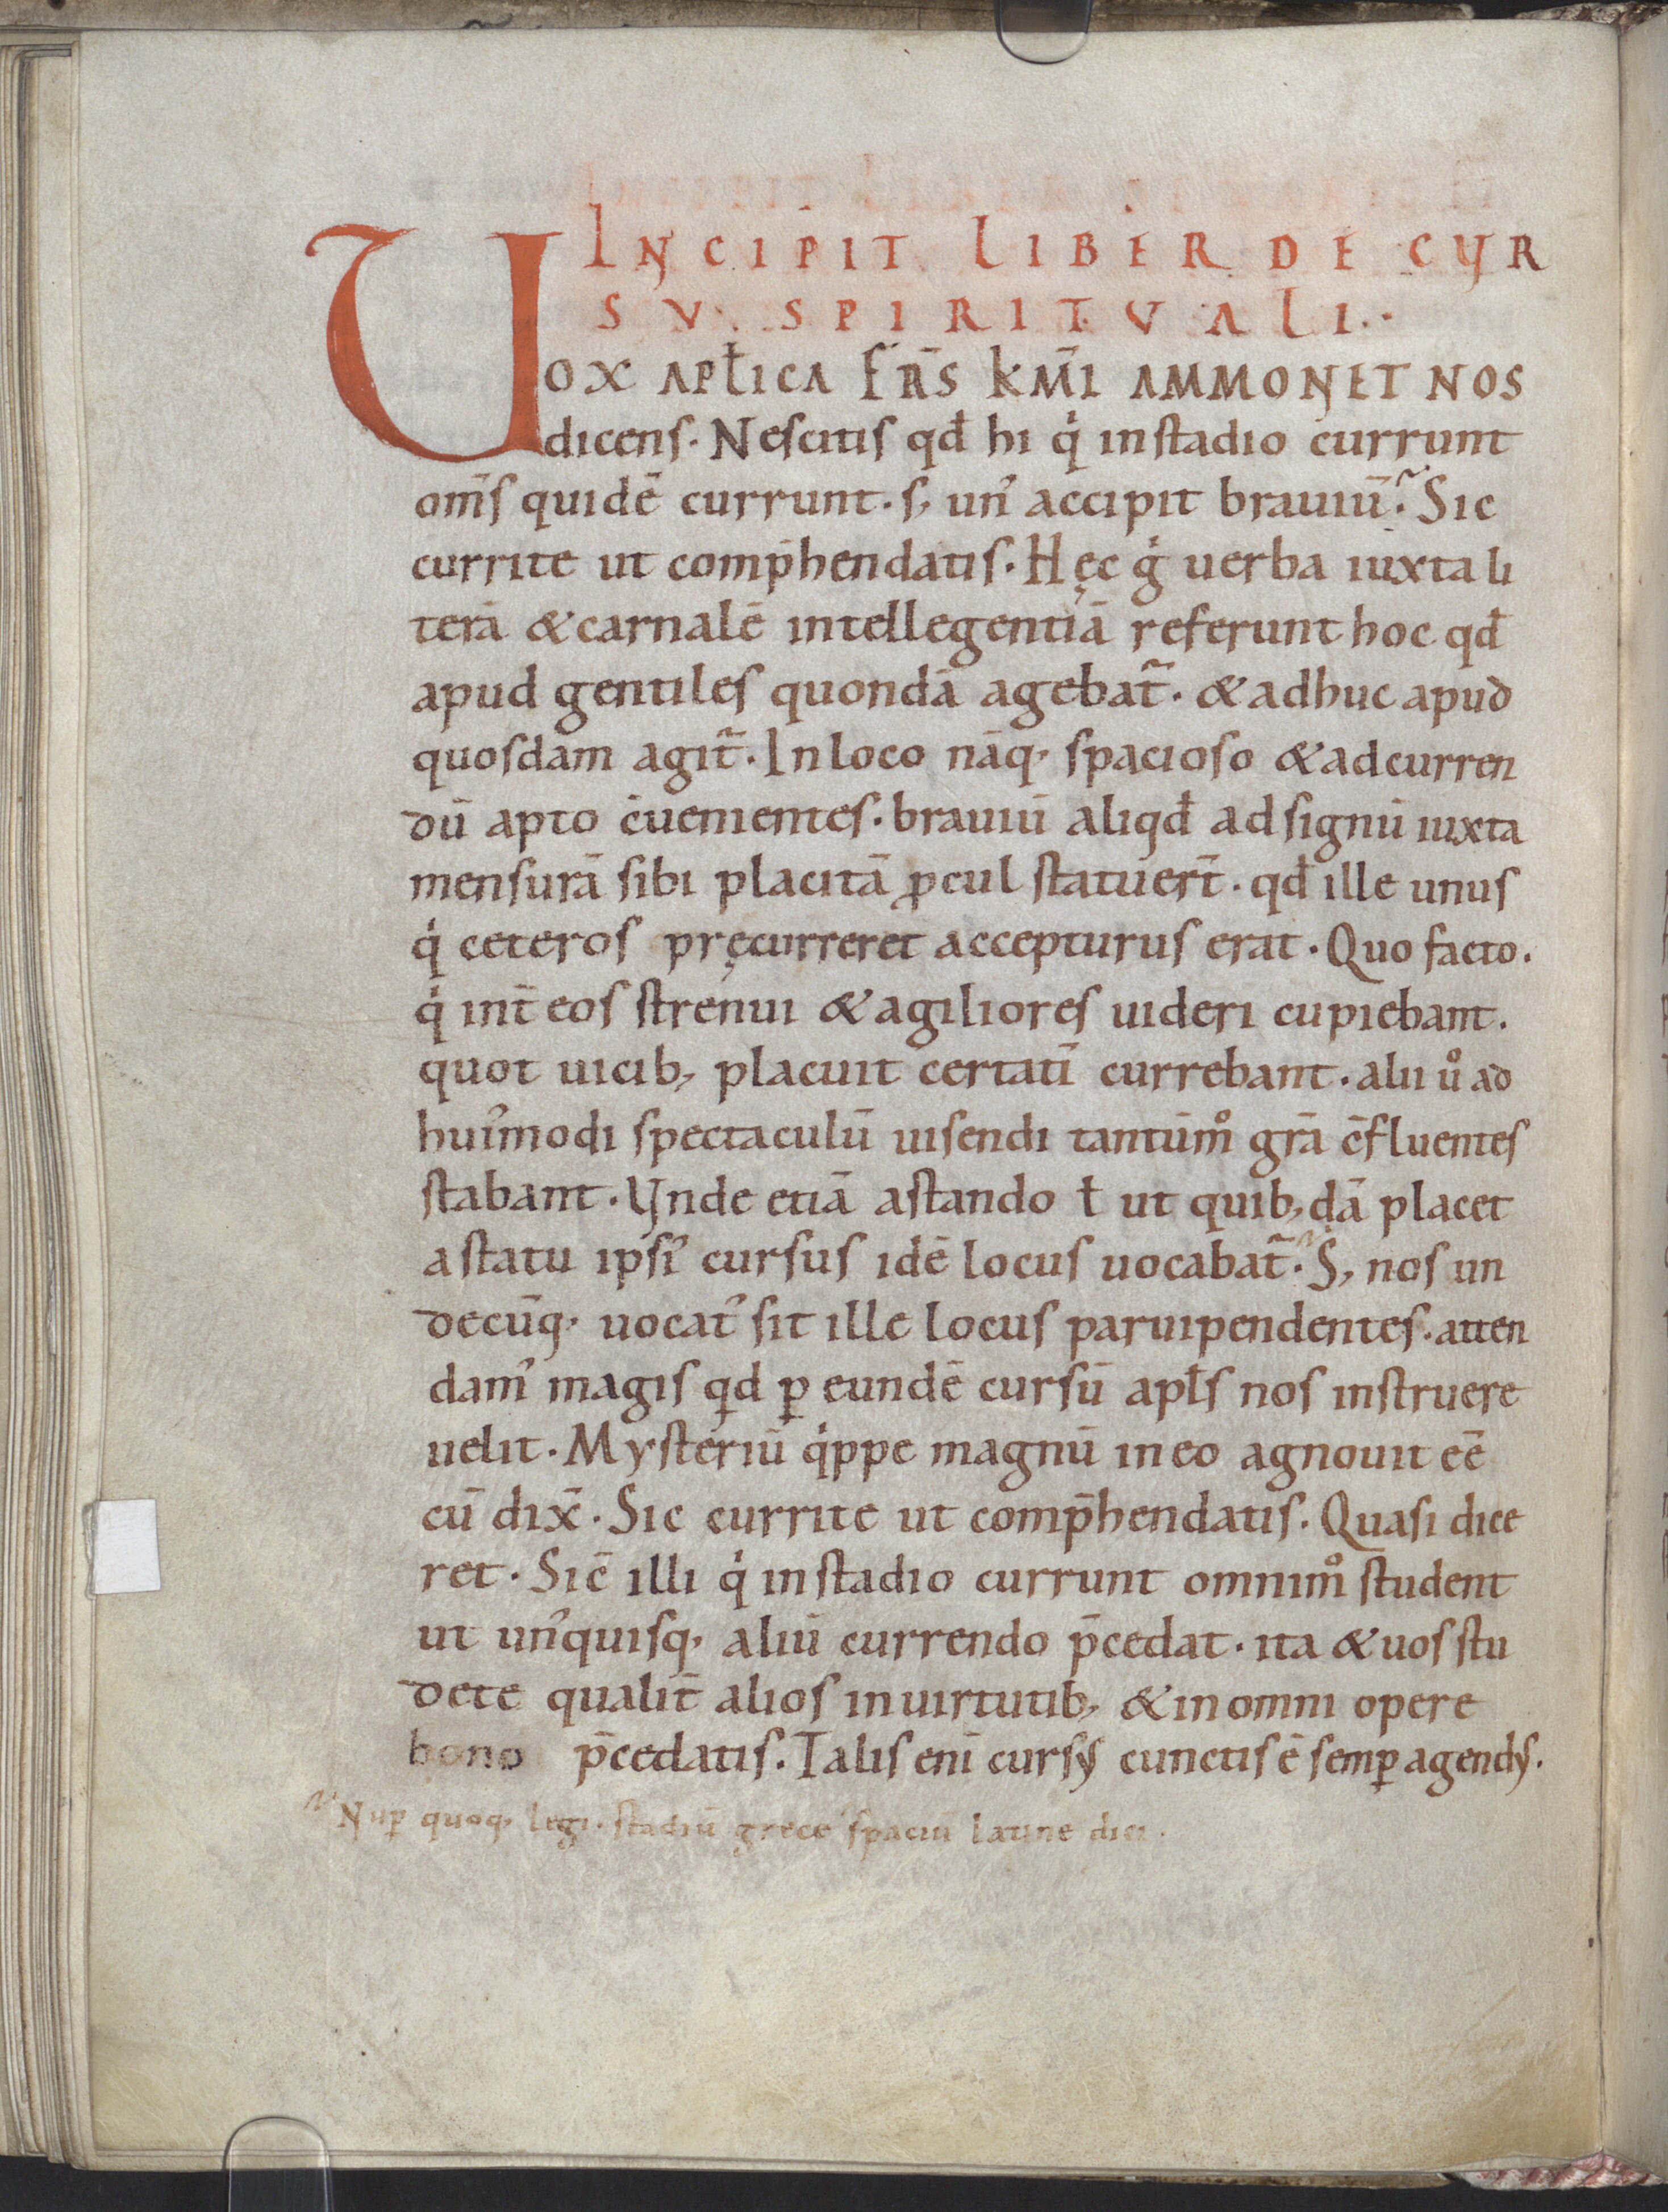 INCIPIT LIBER DE CUR
SV SPIRITVALI.
UOX APŁICA FRS̄ KM̄I AMMONET NOS
dicens. Nescitis qđ hi q̇ instadio currunt
om̄s quidē currunt. s; un᾽ accipit brauiū. Sic
currite ut comp̄hendatis. Hęc ġ uerba iuxta li
terā & carnalē intellegentiā referunt hoc qđ
apud gentiles quondā agebat᷑. & adhuc apud
quosdam agit᷑. In loco nāq; spacioso & adcurren
dū apto c̄uenientes. brauiū aliqđ ad signū iuxta
mensurā sibi placitā ꝓcul statuer̄t. qđ ille unus
q̇ ceteros pręcurreret accepturus erat. Quo facto.
q̇ int̄ eos strenui & agiliores uideri cupiebant.
quot uicib; placuit certatī currebant. alii uͦ ad
hui᾽modi spectaculū uisendi tantūmͦ grā c̄fluentes
stabant. Unde etiā astando ł ut quib;dā placet
a statu ipsi᾽ cursus idē locus uocabat᷑. S; nos un
decūq; uocat᾽ sit ille locus paruipendentes. atten
dam᾽ magis qd ꝑ eundē cursū apłs nos instruere
uelit. Mysteriū q̇ppe magnū in eo agnouit eē
cū dix̄. Sic currite ut comp̄hendatis. Quasi dice
ret. Sic̄ illi q̇ instadio currunt omnimͦ student
ut un᾽quisq; aliū currendo p̄cedat. ita & uos stu
dete qualit̄ alios in uirtutib; & in omni opere
bono p̄cedatis. Talis eni᷑ cursus cunctis ē semꝑ agendus.
Nuꝑ quoq; legi. stadiū grece spaciū latine dici.